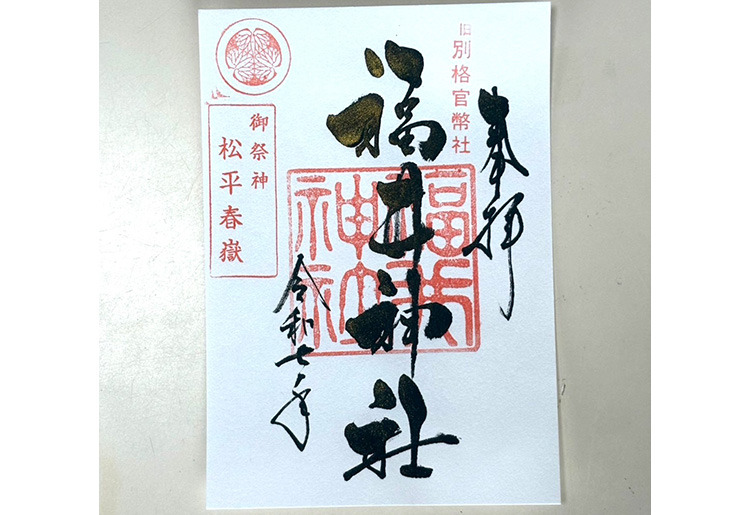 奉拝
旧別格官幣社
福井神社
令和七年
御祭神
松平春嶽